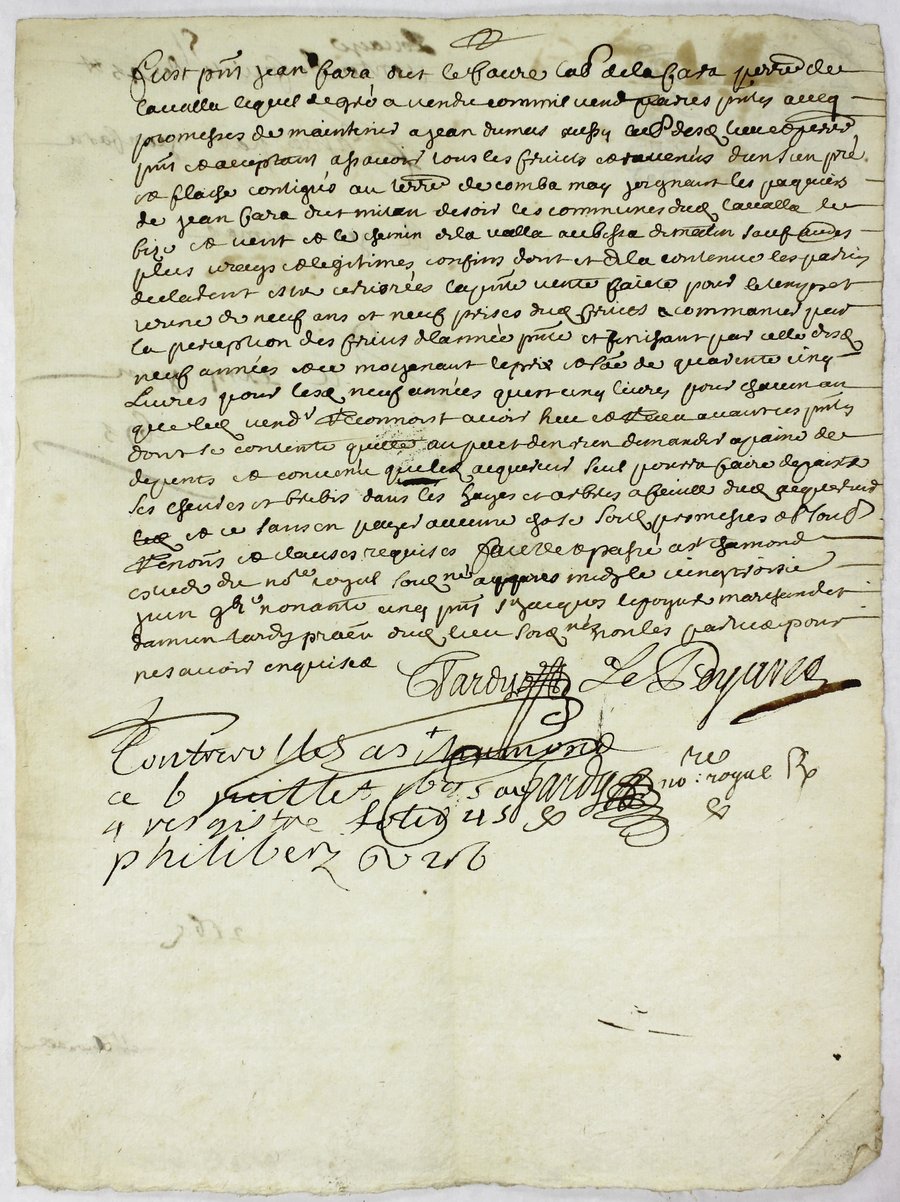 C'est pnt jean fara dit le faure labr de la fara perrse de
lavalla lequel de gré a vendu comme il vend parties pntes avecq
promesses de maintenir a jean dumas aussy labr desd lieu et perrse
pnt et aceptant assavoir tous les fruits et revenus d'un sien pré
et flache contigus au terroir de comba may joignant les paquiers
de jean fara dit milan de soir les communes dud lavalla de
bize et vent et le chemin de la valla au bessa de matin sauf
plus vrays et legitimes confins dont et de la contenue les parties
declarent estre la pnte vente faicte pour le temps et
terme de neuf ans et neuf prises dud fruits a commancer par
la perception des fruits de l'année pnte et finissant par celle desd
neuf années et ce moyenant le prix et so.e de quarente cinq
livres pour lesd neuf années qu'est cinq livres pour chacun an
que led vendr reconnoist avoir heu et receu avant ces pntes
dont se contente quitte au pact d'en rien demander a paine de
depents et convenu que led acquereur seul pourra faire
ses chevres et brebis dans les hayes et arbres a feuille dud acquereur
et ce sans en payer aucune chose soub promesses obons
renons et clauses requises faict et passé a St chamond
estude du nore royal soubné appres midy le vingt troisie
juin nonante cinq pnts sr jacques lepoyure marchand et
damien tardy praen dud lieu soubnés non les parties pour
ne savoir enquis et
Tardy Le Poyure
Controrolle a St chaumond
ce 6 juillet 1695 au Tardy nore royal R
4 registre folio 45
philibert